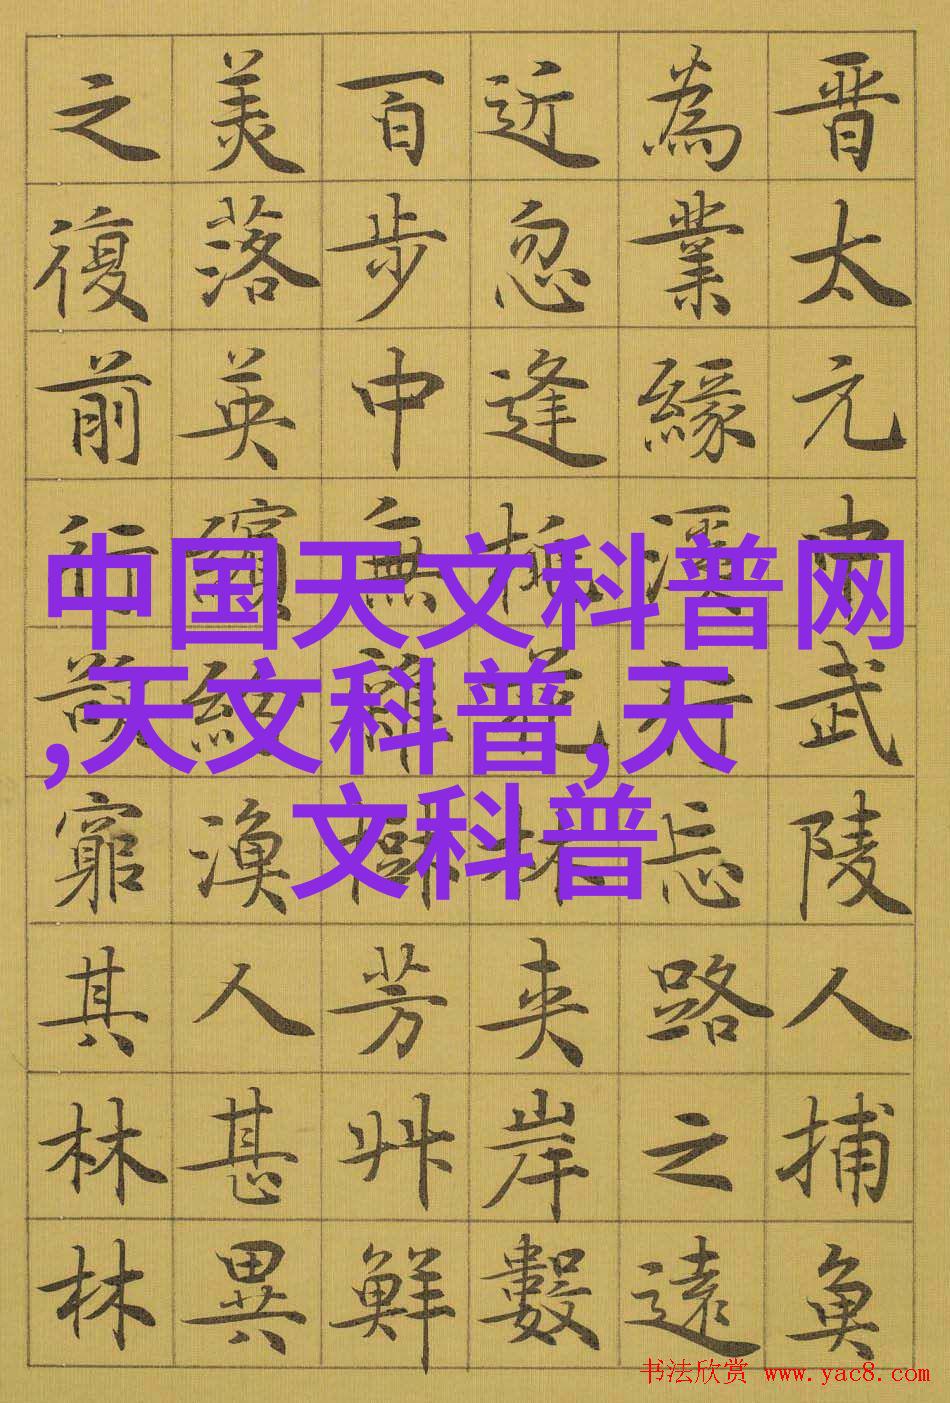 晋太元中武陵人捕魚
為業緣溪行忘路之遠
近忽逢桃花林夾岸數
百步中無雜樹芳艸鮮
美落英繽紛漁人甚異
之復前行欲窮其林林
中国天文科普网
,天文科普,天
文科普
书法欣赏 www.yac8.com